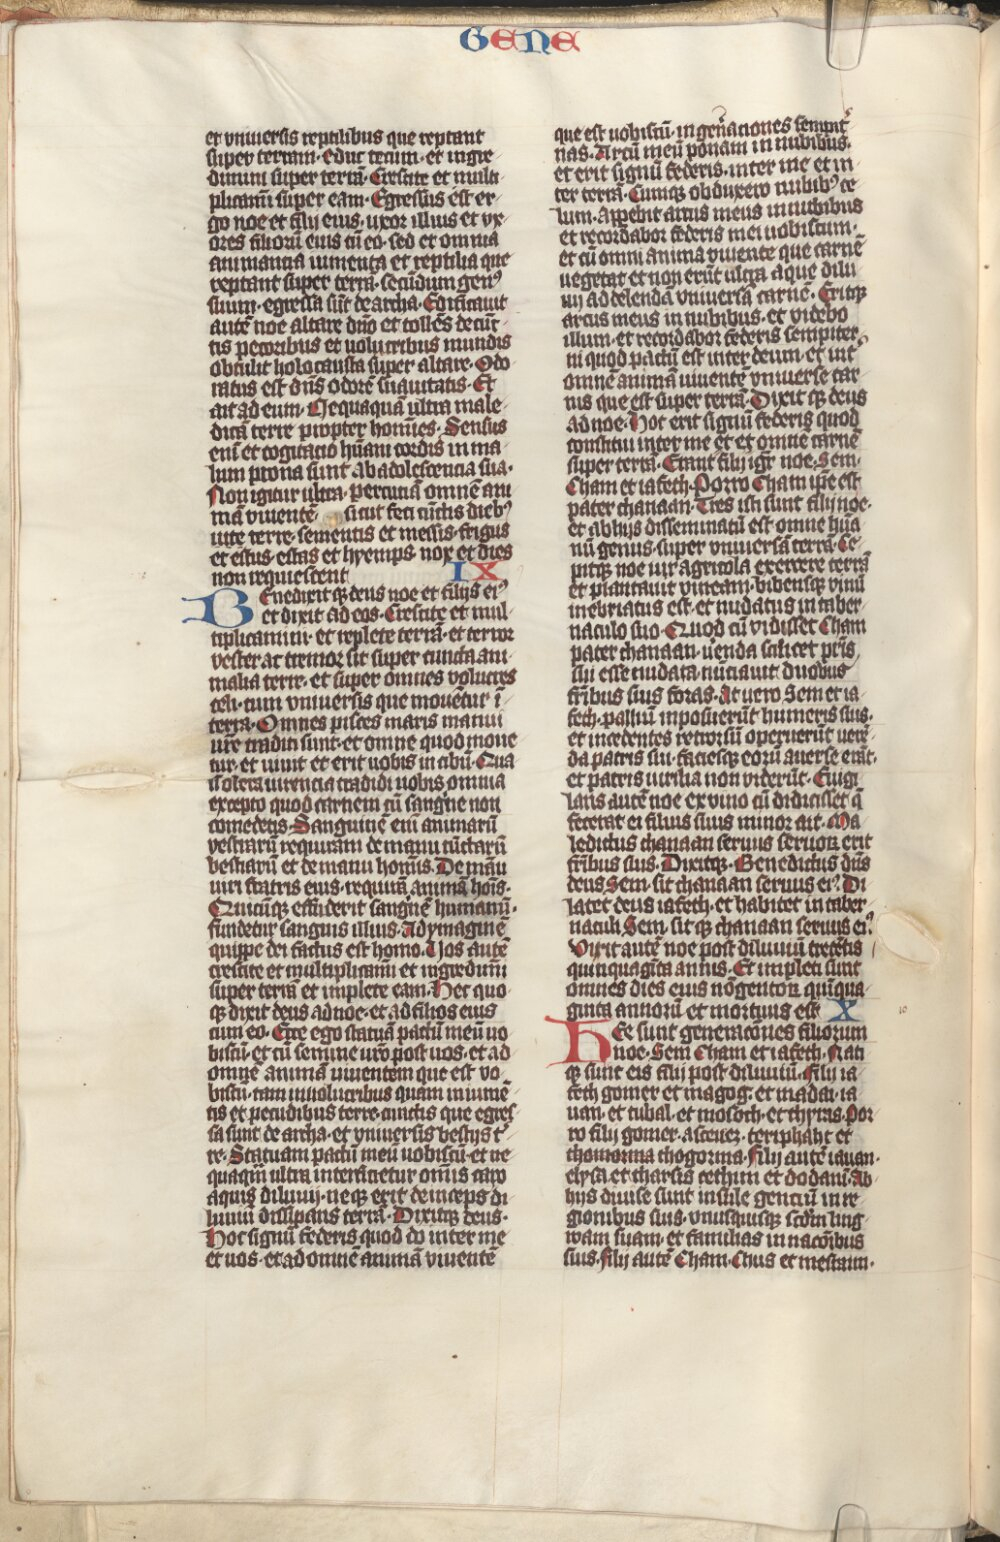 GENE
et vniuersis reptilibus que reptant
super terram· educ tecum· et ingre-
dimini super terrā· Crescite et multi-
plicamī super eam· Egressus est er-
go noe et filij eius· uxor illius et vx-
ores filiorū eius cū eo· sed et omnia
animantia iumenta et reptilia que
reptant super terrā· secūdum genꝰ
suum· egressa sūt de archa· Edificauit
autē noe altare dn̄o et tollēs de cūc-
tis pecoribus et uolucribus mundis
obtulit holocausta super altare· Odo-
ratus est dn̄s odorē suauitatis· Et
ait ad eum· Nequaquā ultra male-
dicā terre propter homīes· Sensus
enī et cogitatio hūani cordis in ma-
lum prona sunt ab adolescencia sua·
Non igitur ultra· percutiā omnē ani-
mā viuentē sicut feci cūctis diebꝰ
uite terre· sementis et messis· frigus
et estus· estas et hyemps· nox et dies
non requiescent IX
Benedixitqꝫ deus noe et filijs eiꝰ
et dixit ad eos· Crescite et mul-
tiplicamini· et replete terrā· et terror
vester ac tremor sit super cuncta ani-
malia terre· et super omnes volucres
celi· cum vniuersis que mouētur ī
terra· Omnes pisces maris manui
ur̄e traditi sunt· et omne quod moue-
tur· et uiuit et erit uobis in cibū· Qua-
si olera uirentia tradidi uobis omnia
excepto quod carnem cū sangīne non
comedetis· Sanguinē enī animarū
vestrarū requiram de manu cūctarū
bestiarū et de manu homīs· De mānu
uiri fratris eius· requirā animā hoīs·
Quicūqꝫ effuderit sangīnē humanū·
fundetur sanguis illius· Ad ymaginē
quippe dei factus est homo· Uos autē
crescite et multiplicamī et ingredimī
super terrā et implete eam· Hec quo-
qꝫ dixit deus ad noe· et ad filios eius
cum eo· Ecce ego statuā pactū meū uo-
biscū· et cū semine ur̄o post uos· et ad
omnē animā viuentem que est vo-
biscū· tam in uolucribus quam in iumē-
tis et pecudibus terre· cunctis que egres-
sa sunt de archa· et vniuersis bestijs t̄-
re· Statuam pactū meū uobiscū· et ne-
quaqm̄ ultra interficietur omīs caro
aquis diluuij· neqꝫ erit deinceps di-
luuiū dissipans terrā· Dixitqꝫ deus·
Hoc signū federis quod do inter me
et uos· et ad omnē animā viuentē
que est uobiscū· in gen̄ationes sempit̄-
nas· Arcū meū ponam in nubibus·
et erit signū federis· inter me et in-
ter terrā· Cumqꝫ obduxero nubibꝰ ce-
lum· Apperebit arcus meus in nubibus
et recordabor federis mei uobiscum·
et cū omni anima viuente que carnē
uegetat et non erūt ultra aque dilu-
uij ad delendā vniuersā carnē· Eritqꝫ
arcus meus in nubibus· et videbo
illum· et recordabor federis sempiter-
ni quod pactū est inter deum· et int̄
omnē animā uiuentē vniuerse car-
nis que est super terrā· Dixitqꝫ deus
ad noe· Hoc erit signū federis quod
constitui inter me et et omnē carnē
super terrā· Erant filij igr̄ noe· Sem·
Cham et iafeth· Porro Cham ip̄e est
pater chanaan· Tres isti sunt filij noe·
et ab hijs disseminatū est omne hūa-
nū genus· super vniuersā terrā· Ce-
pitqꝫ noe uir agricola exercere terrā
et plantauit vineam· bibensqꝫ vinū
inebriatus est· et nudatus in taber-
naculo suo· Quod cū vidisset Cham
pater chanaan· u'enda scilicet pr̄is
sui esse nudata· nūciauit duobus
fr̄ibus suis foras· At uero Sem et ia-
feth· palliū inposuerūt humeris suis·
et incedentes retrorsū operuerūt uerē-
da patris sui· faciesqꝫ eorū auerse erāt·
et patris uirilia non viderūt· Euigi-
lans autē noe ex vino cū didicisset q̄
fecerat ei filius suus minor ait· Ma-
ledictus chanaan seruus seruoꝝ erit
fr̄ibus suis· Dixitqꝫ· Benedictus dn̄s
deus Sem· sit chanaan seruus eiꝰ· Di-
latet deus iafeth· et habitet in taber-
naculi Sem· sitqꝫ chanaan seruus eiꝰ·
Vixit autē noe post diluuiū trecētis
quinquagīta annis· Et impleti sunt
omnes dies eius nōgentoꝝ quīqua-
ginta annorū et mortuus est X
Hee sunt generatōnes filiorum
noe· Sem Cham et iafeth· Nati-
qꝫ sunt eis filij post diluuiū· Filij ia-
feth gomer et magog· et madai· ia-
uan· et tubal· et mosoch· et thyras· Por-
ro filij gomer· ascenez· et riphaht et
thogorma· Filij autē iauan·
elysa et tharsis cethim et dodani· Ab
hijs diuise sunt insule genciū in re-
gionibus suis· vnusquisqꝫ scdm̄ ling-
wam suam· et familias in nacōibus
suis· Filij autē Cham· Chus et mesraim·